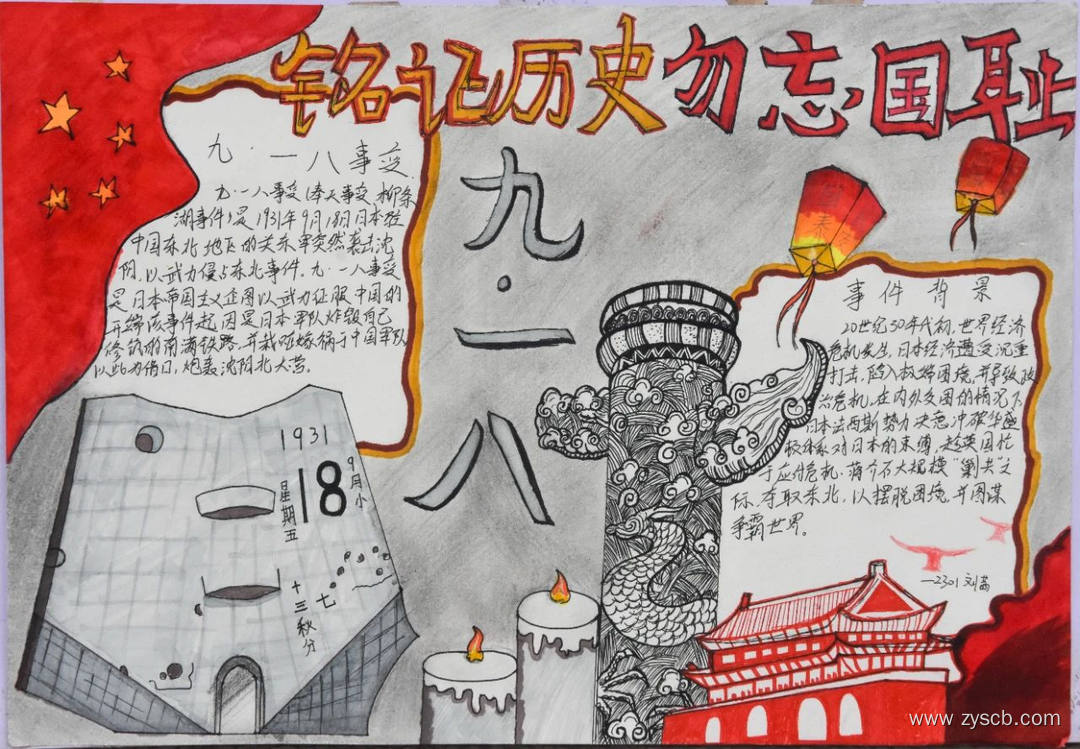 铭记历史勿忘国耻
九·一八事变
九·一八事变(奉天事变、柳条
湖事件)是1931年9月18日日本在
中国东北地区的关东军突然袭击沈
阳,以武力侵占东北事件。九·一八事变
是日本帝国主义企图以武力征服中国的
开端该事件起因是日本军队炸毁自己
修筑的南满铁路,并栽赃嫁祸于中国军队
以此为借口,炮轰沈阳北大营。
九·一八
1931
18
9月小
星期五
十三秋分
七
事件背景
20世纪30年代初,世界经济
危机发生,日本经济遭受沉重
打击,陷入极端困境,并导致政
治危机,在内外交困的情况下
日本法西斯势力决意冲破华盛
顿体系对日本的束缚,趁英国忙
于应付危机,蒋介石大规模“剿共”之
际,夺取东北,以摆脱困境,并图谋
争霸世界。
—2301 刘
www.zyscb.com